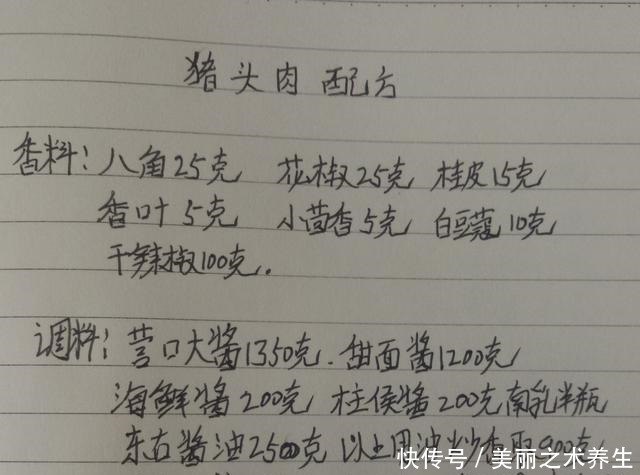 猪头肉 配方
香料：八角25克 花椒25克 桂皮15克
香叶5克 小茴香5克 白豆蔻10克
干辣椒100克.
调料：营口大酱1350克.甜面酱1200克
海鲜酱200克 柱侯酱200克 南乳半瓶
东古酱油2500克 以上用油炒香
快传号／美丽之术养生